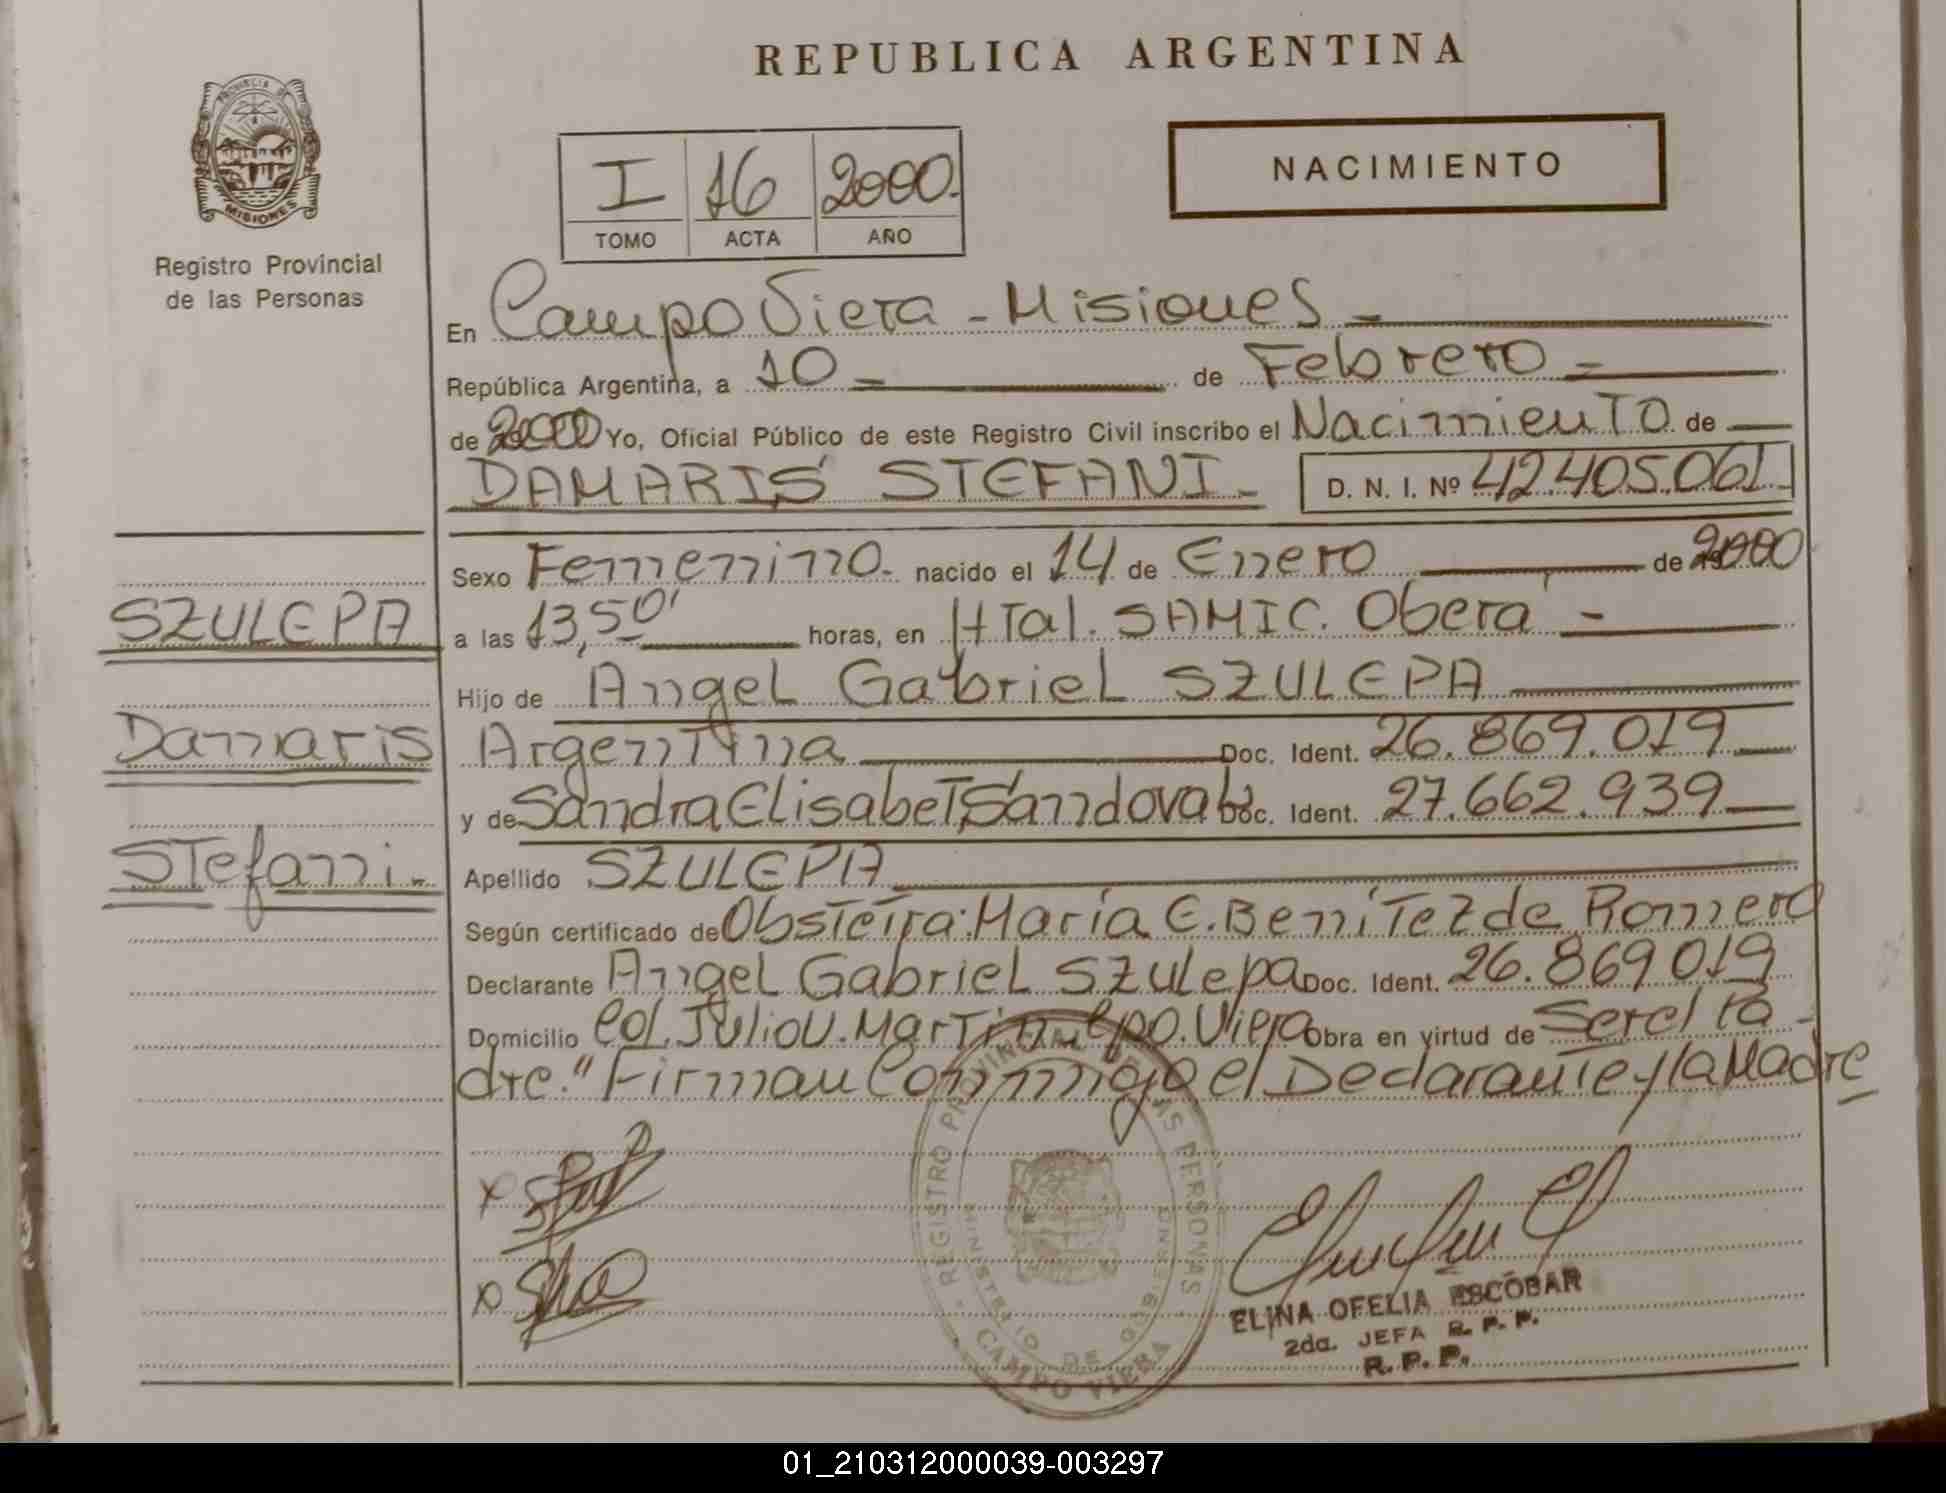 REPUBLICA ARGENTINA
PROVINCIA DE
MISIONES
Registro Provincial
de las Personas
I 16 2000.
TOMO ACTA AÑO
NACIMIENTO
En Campo Viera - Misiones
República Argentina, a 10 de Febrero
de 2000 Yo, Oficial Público de este Registro Civil inscribo el Nacimiento de
DAMARIS STEFANI D. N. I. Nº 42.405.061
Sexo Femenino. nacido el 14 de Enero de 2000
SZULEPA
a las 13,50' horas, en HTal. SAMIC. Oberá
Hijo de Angel Gabriel SZULEPA
Damaris
Argentina Doc. Ident. 26.869.019
y de Sandra Elisabet Sandoval Doc. Ident. 27.662.939
Stefani.
Apellido SZULEPA
Según certificado de Obstetra: María E. Benitez de Romero
Declarante Angel Gabriel Szulepa Doc. Ident. 26.869.019
Domicilio Col. Julio U. Martin Cpo. Viera Obra en virtud de Ser el Pa-
dre." Firman Conmigo el Declarante y la Madre
REGISTRO PROVINCIAL DE LAS PERSONAS
MINISTERIO DE GOBIERNO
CAMPO VIERA
ELINA OFELIA ESCOBAR
2da. JEFA R. P. P.
R. P. P.
01_210312000039-003297